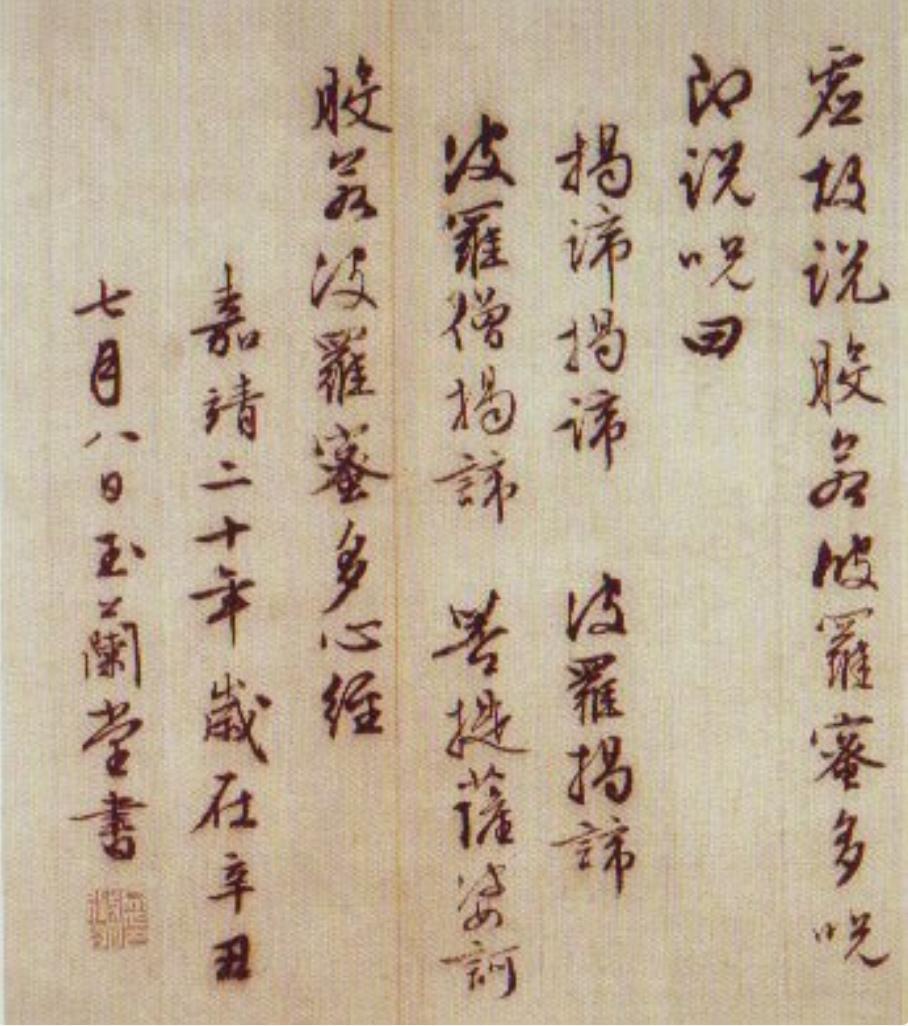 虛故説般若波羅蜜多呪
即説呪曰
揭諦揭諦 波羅揭諦
波羅僧揭諦 菩提薩婆訶
般若波羅蜜多心經
嘉靖二十年歲在辛丑
七月八日玉蘭堂書